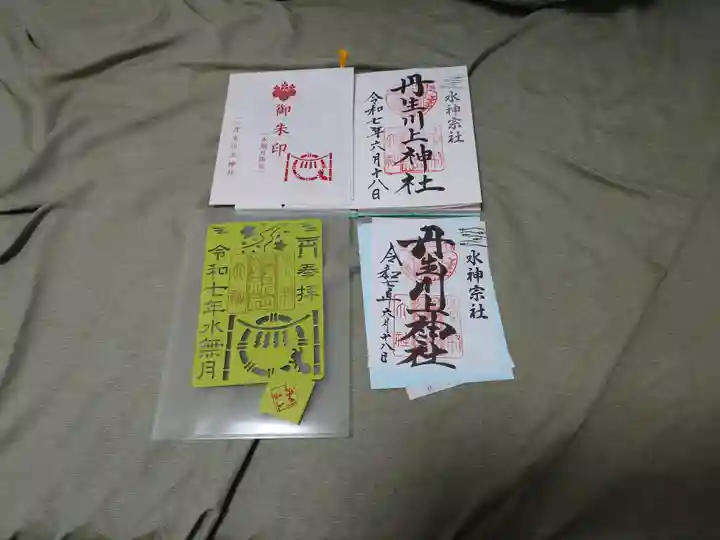 御朱印
丹生川上神社
水神宗社
丹生川上神社
令和七年六月十八日
奉拝
令和七年水無月
水神宗社
丹生川上神社
令和七年六月十八日